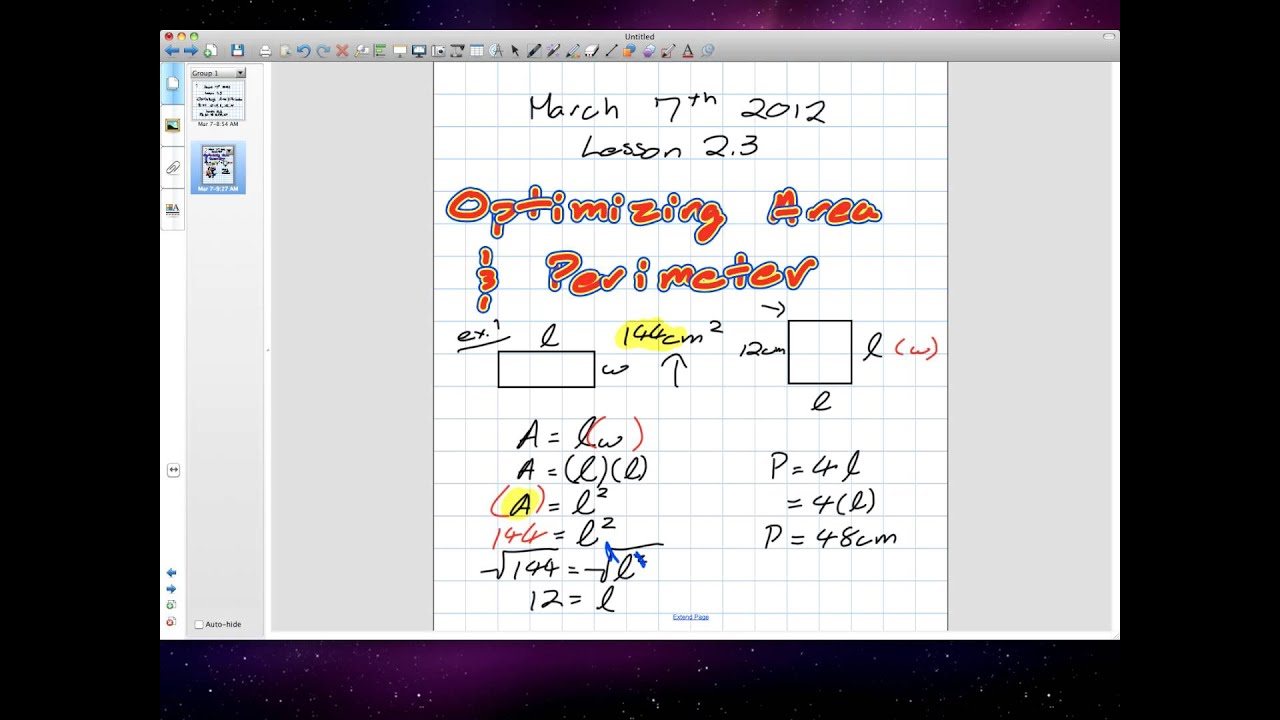 Untitled
Group 1
Mar 7-8:54 AM
Mar 7-9:27 AM
March 7th 2012
Lesson 2.3
Optimizing Area
& Perimeter
ex.1
l
w
144cm²
→
12cm
l (w)
l
A = l(w)
A = (l)(l)
(A) = l²
144 = l²
√144 = √l²
12 = l
P = 4l
= 4(l)
P = 48cm
Extend Page
Auto-hide